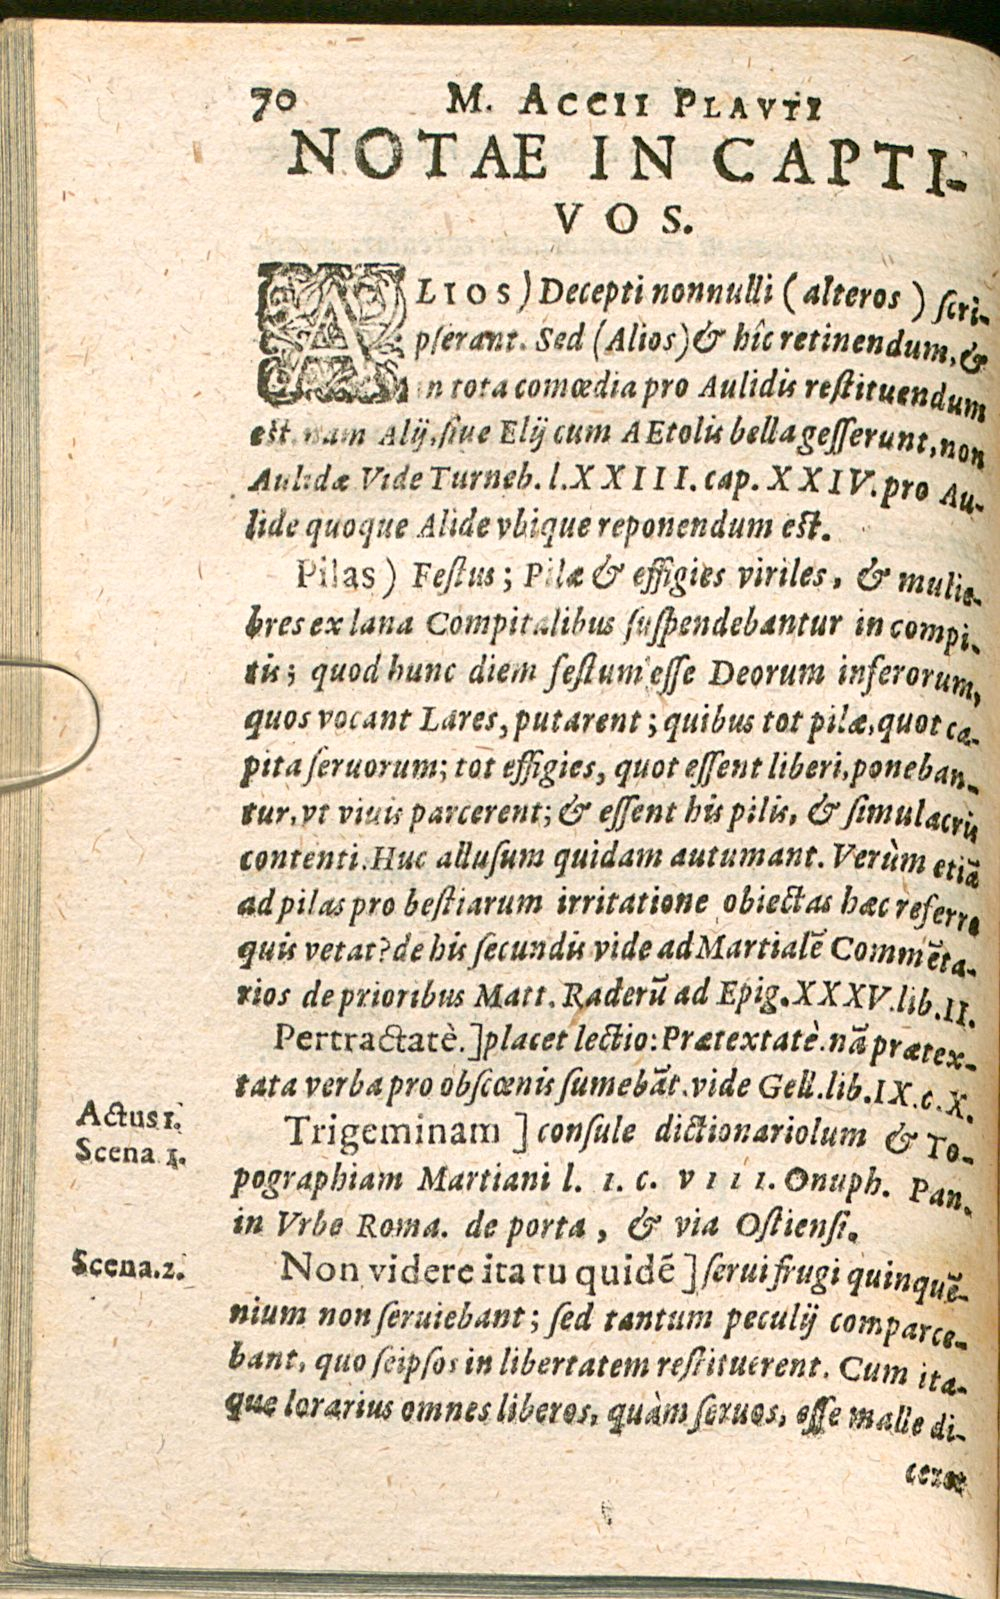 70 M. ACCII PLAVTI
NOTAE IN CAPTI-
VOS.
ALIOS) Decepti nonnulli (alteros) ſcri-
pſerant. Sed (Alios) & hîc retinendum, &
in tota comœdia pro Aulidis reſtituendum
est. nam Alij, ſiue Elij cum AEtolis bella geſſerunt, non
Aulidæ Vide Turneb. l. XXIII. cap. XXIV. pro Au-
lide quoque Alide vbique reponendum est.
Pilas) Feſtus; Pilæ & effigies viriles, & mulie-
bres ex lana Compitalibus ſuſpendebantur in compi-
tis; quod hunc diem feſtum eſſe Deorum inferorum,
quos vocant Lares, putarent; quibus tot pilæ, quot ca-
pita ſeruorum; tot effigies, quot eſſent liberi, poneban-
tur, vt viuis parcerent; & eſſent his pilis, & ſimulacris
contenti. Huc alluſum quidam autumant. Verùm etiã
ad pilas pro beſtiarum irritatione obiectas hæc referre
quis vetat? de his ſecundis vide ad Martialẽ Commẽta-
rios de prioribus Matt. Raderũ ad Epig. XXXV. lib. II.
Pertractatè.] placet lectio: Prætextatè. nã prætex-
tata verba pro obſcœnis ſumebãt. vide Gell. lib. IX. c. X.
Actus 1.
Scena 1.
Trigeminam] conſule dictionariolum & To-
pographiam Martiani l. I. c. VIII. Onuph. Pan.
in Vrbe Roma. de porta, & via Oſtienſi.
Scena. 2.
Non videre ita tu quidẽ] ſerui frugi quinquẽ-
nium non ſeruiebant; ſed tantum peculij comparce-
bant, quo ſeipſos in libertatem reſtituerent. Cum ita-
que lorarius omnes liberos, quàm ſeruos, eſſe malle di-
ceret